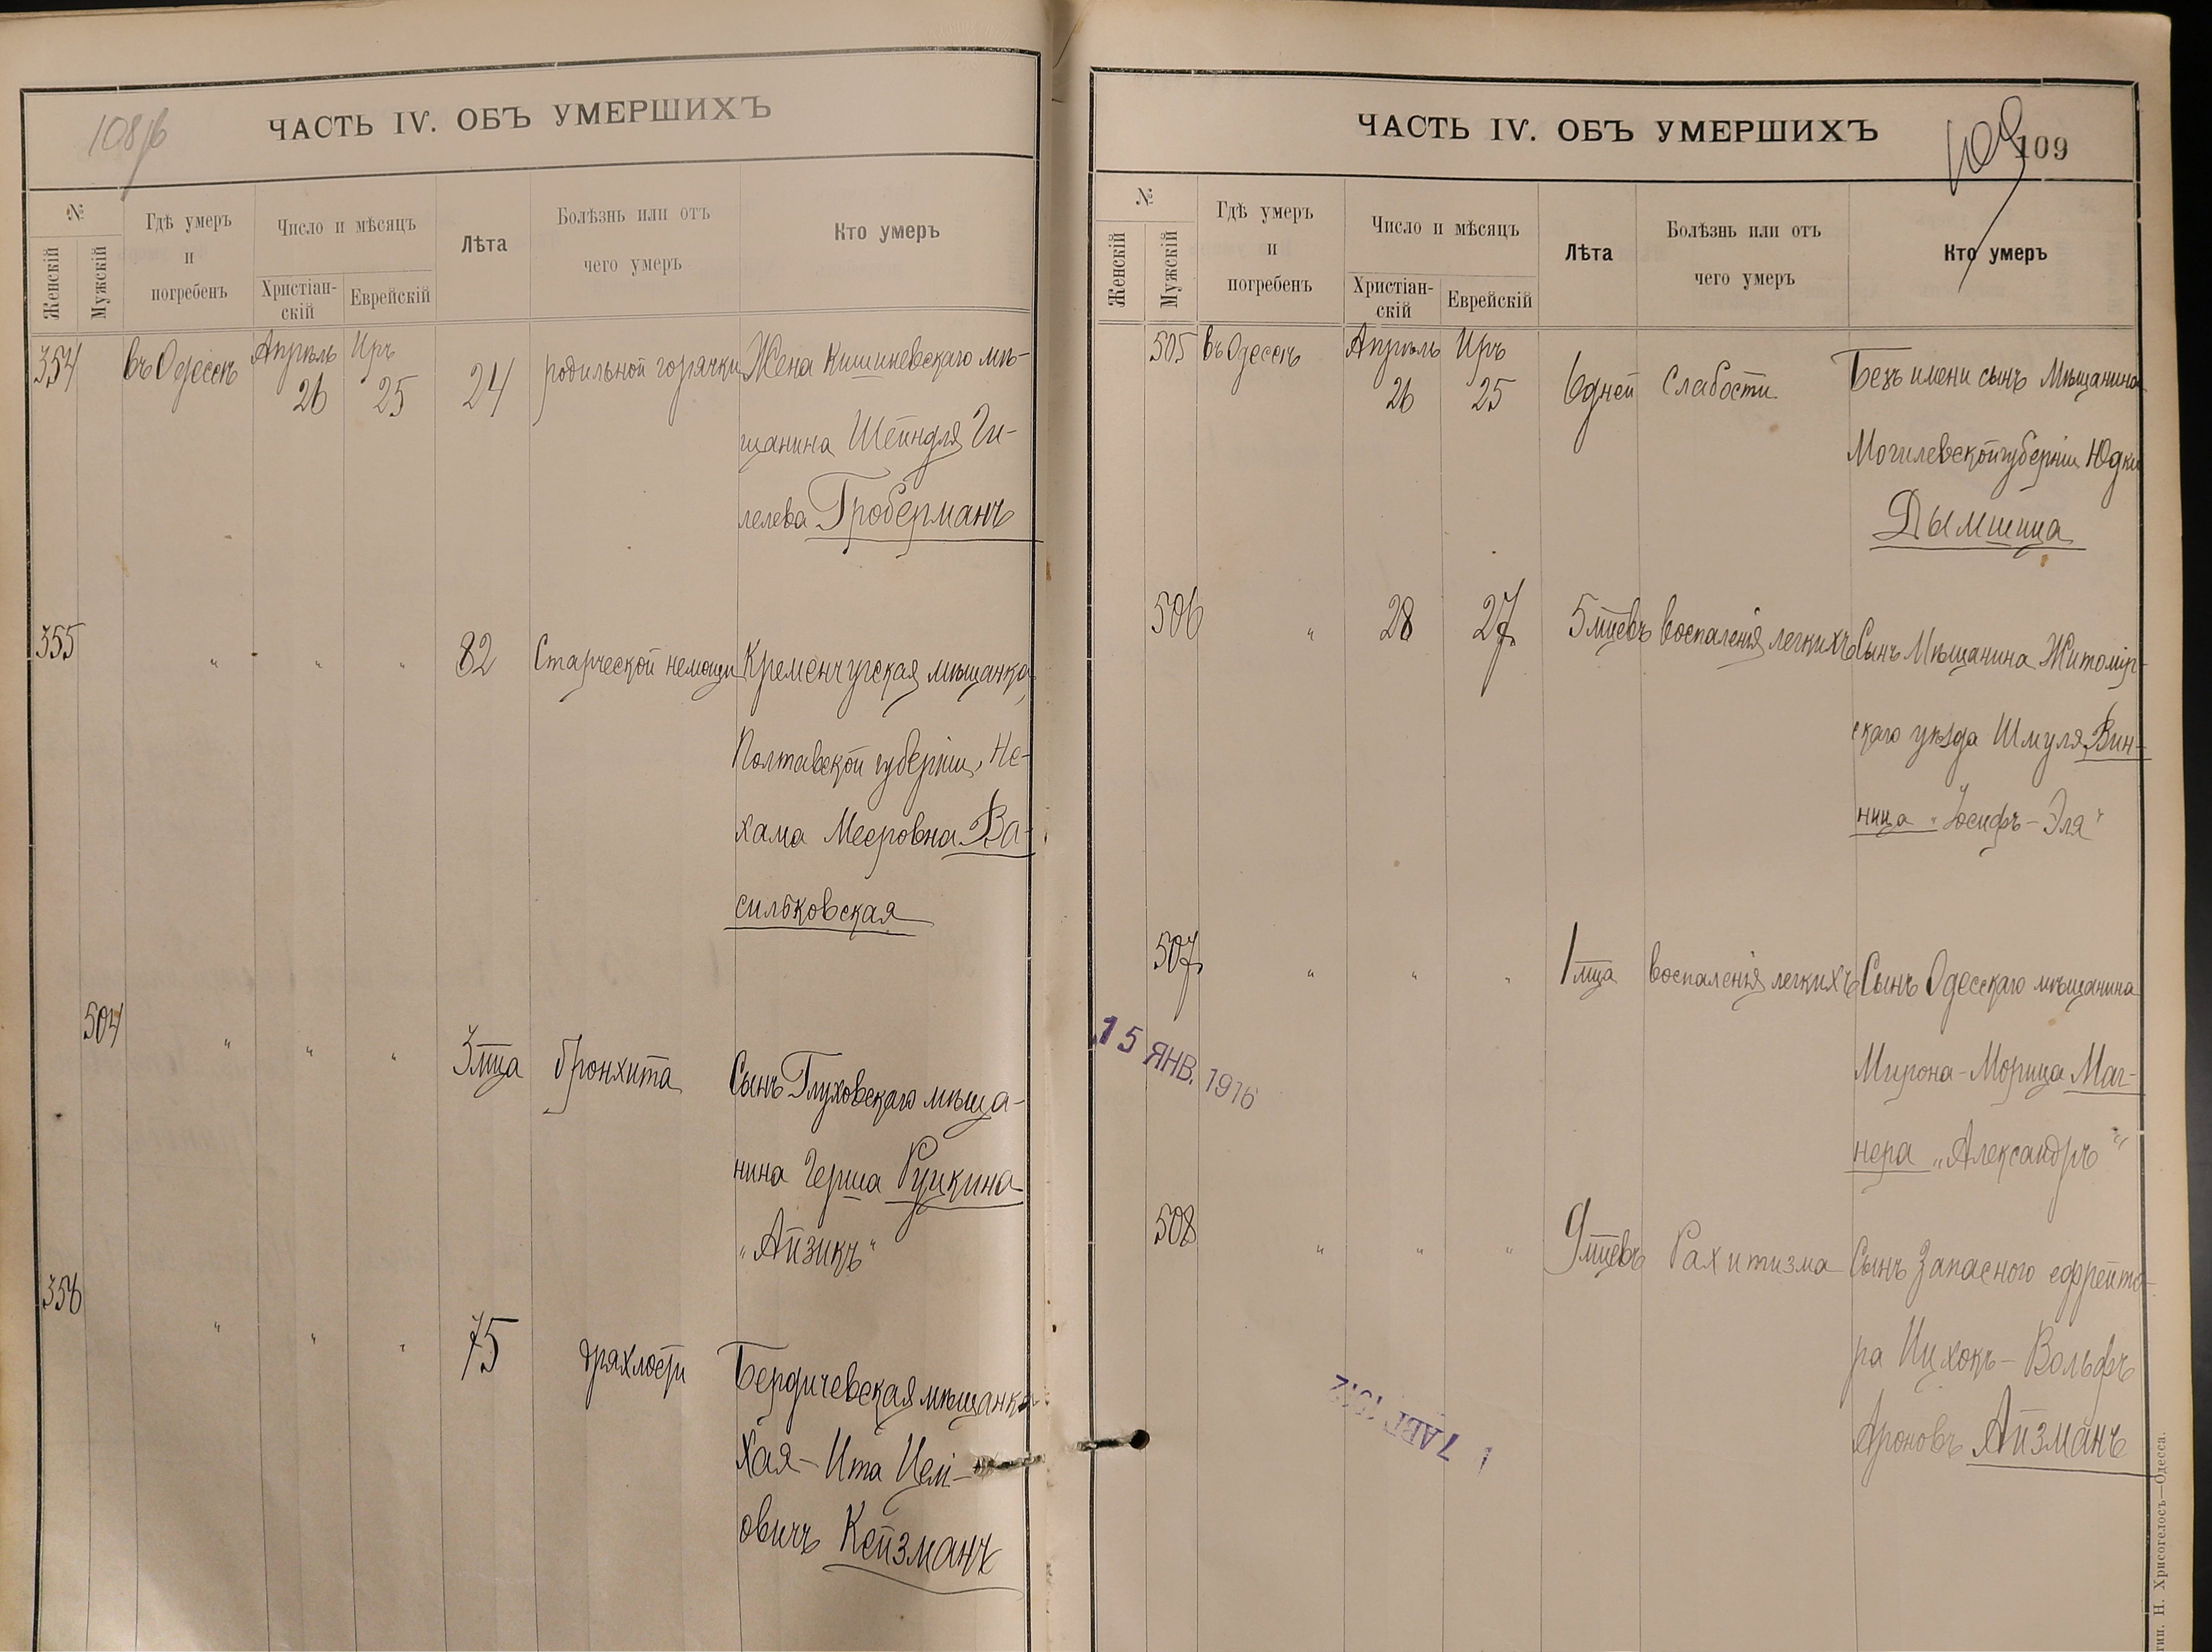 108 об
ЧАСТЬ IV. ОБЪ УМЕРШИХЪ
№
Женскій
Мужскій
Гдѣ умеръ
и
погребенъ
Число и мѣсяцъ
Христіан-
скій
Еврейскій
Лѣта
Болѣзнь или отъ
чего умеръ
Кто умеръ
354 въ Одессѣ Апрѣль 26 Иръ 25 24 родильной горячки Жена Кишиневскаго мѣ-
щанина Шейндля Ги-
лелева Гроберманъ
355 " " " 82 Старческой немощи Кременчугская мѣщанка,
Полтавской губерніи, Не-
хама Мееровна Ва-
сильковская
504 " " " 3 мца бронхита Сынъ Глуховскаго мѣща-
нина Герша Рушкина
"Айзикъ"
356 " " " 75 дряхлости Бердичевская мѣщанка
Хая-Ита
овичъ Кейзманъ
ЧАСТЬ IV. ОБЪ УМЕРШИХЪ
109
109
№
Женскій
Мужскій
Гдѣ умеръ
и
погребенъ
Число и мѣсяцъ
Христіан-
скій
Еврейскій
Лѣта
Болѣзнь или отъ
чего умеръ
Кто умеръ
505 въ Одессѣ Апрѣль 26 Иръ 25 6 дней Слабости Безъ имени сынъ Мѣщанина
Могилевской губерніи Юдки
Дымшица
506 " 28 27 5 мцевъ воспаленія легкихъ Сынъ Мѣщанина Житомір-
скаго уѣзда Шмуля Вин-
ница "Іосифъ-Эля"
507 " " " 1 мца воспаленія легкихъ Сынъ Одесскаго мѣщанина
Мирона-Морица Маг-
нера „Александръ"
15 ЯНВ. 1916
508 " " " 9 мцевъ Рахитизма Сынъ Запаснаго ефрейто-
ра Ицхокъ-Вольфъ
Ароновъ Айзманъ
17 АВГ
тип. Н. Хрисогелосъ—Одесса.